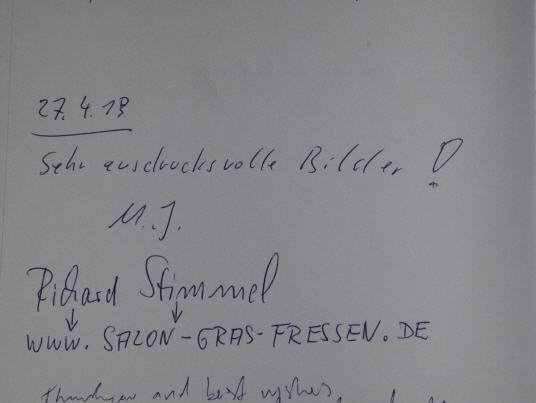 27.4.13
Sehr ausdrucksvolle Bilder!
M.J.
Richard Stimmel
www.SALON-GRAS-FRESSEN.DE
and best wishes